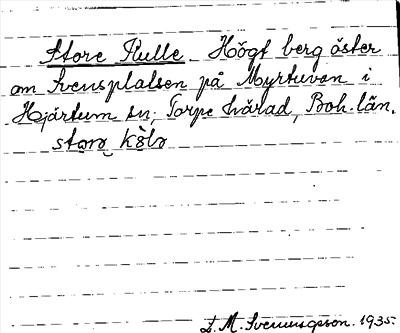 Store Kulle. Högt berg öster
om Svensplatsen på Myrtuvan i
Hjärtum sn; Torpe härad, Boh. län.
L. M. Svenungsson. 1935.